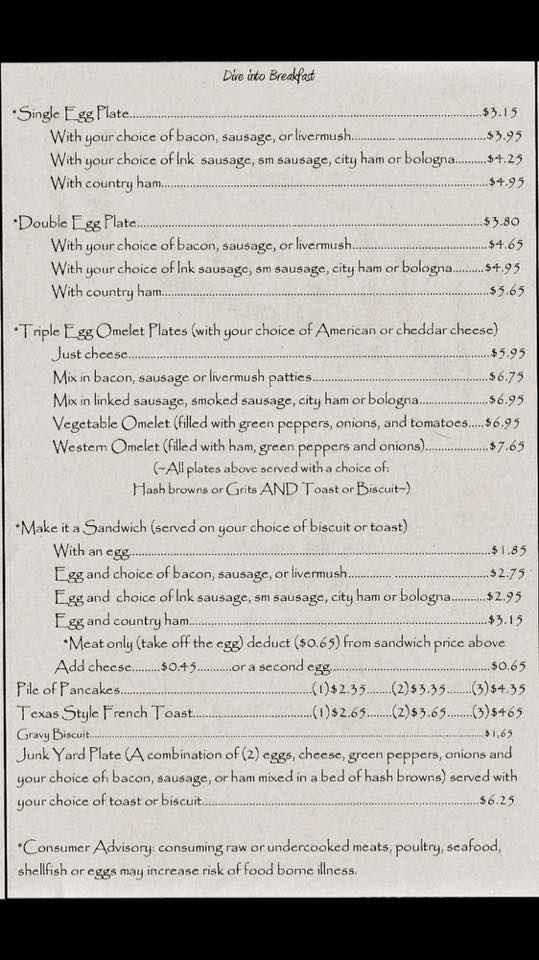 Dive into Breakfast
*Single Egg Plate....................$3.15
With your choice of bacon, sausage, or livermush....................$3.95
With your choice of lnk sausage, sm sausage, city ham or bologna.........$4.25
With country ham....................$4.95
*Double Egg Plate....................$3.80
With your choice of bacon, sausage, or livermush....................$4.65
With your choice of lnk sausage, sm sausage, city ham or bologna.........$4.95
With country ham....................$5.65
*Triple Egg Omelet Plates (with your choice of American or cheddar cheese)
Just cheese....................$5.95
Mix in bacon, sausage or livermush patties....................$6.75
Mix in linked sausage, smoked sausage, city ham or bologna....................$6.95
Vegetable Omelet (filled with green peppers, onions, and tomatoes.....$6.95
Western Omelet (filled with ham, green peppers and onions)....................$7.65
(~All plates above served with a choice of:
Hash browns or Grits AND Toast or Biscuit~)
*Make it a Sandwich (served on your choice of biscuit or toast)
With an egg....................$1.85
Egg and choice of bacon, sausage, or livermush....................$2.75
Egg and choice of lnk sausage, sm sausage, city ham or bologna..........$2.95
Egg and country ham....................$3.15
*Meat only (take off the egg) deduct ($0.65) from sandwich price above
Add cheese.........$0.45...........or a second egg....................$0.65
Pile of Pancakes....................(1)$2.35.......(2)$3.35.......(3)$4.35
Texas Style French Toast....................(1)$2.65.......(2)$3.65.......(3)$465
Gravy Biscuit....................$1,65
Junk Yard Plate (A combination of (2) eggs, cheese, green peppers, onions and
your choice of: bacon, sausage, or ham mixed in a bed of hash browns) served with
your choice of toast or biscuit....................$6.25
*Consumer Advisory: consuming raw or undercooked meats, poultry, seafood,
shellfish or eggs may increase risk of food borne illness.